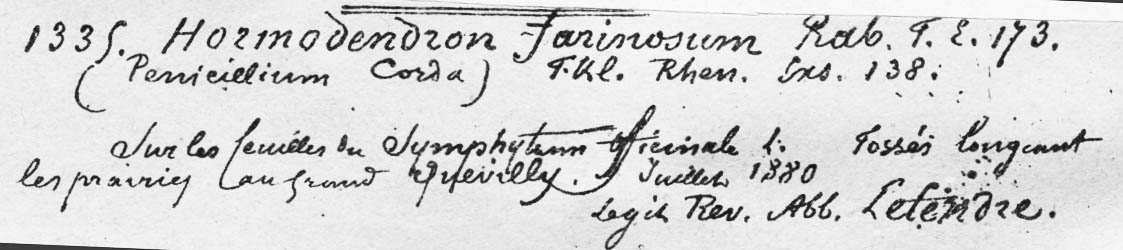 1335. Hormodendron farinosum Rab. F. E. 173.
(Penicillium Corda) Fkl. Rhen. Exs. 138.
Sur les feuilles du Symphytum officinale L. Fossés longeant
les prairies au Grand Quevilly. Juillet 1880
Legit Rev. Abb. Letendre.